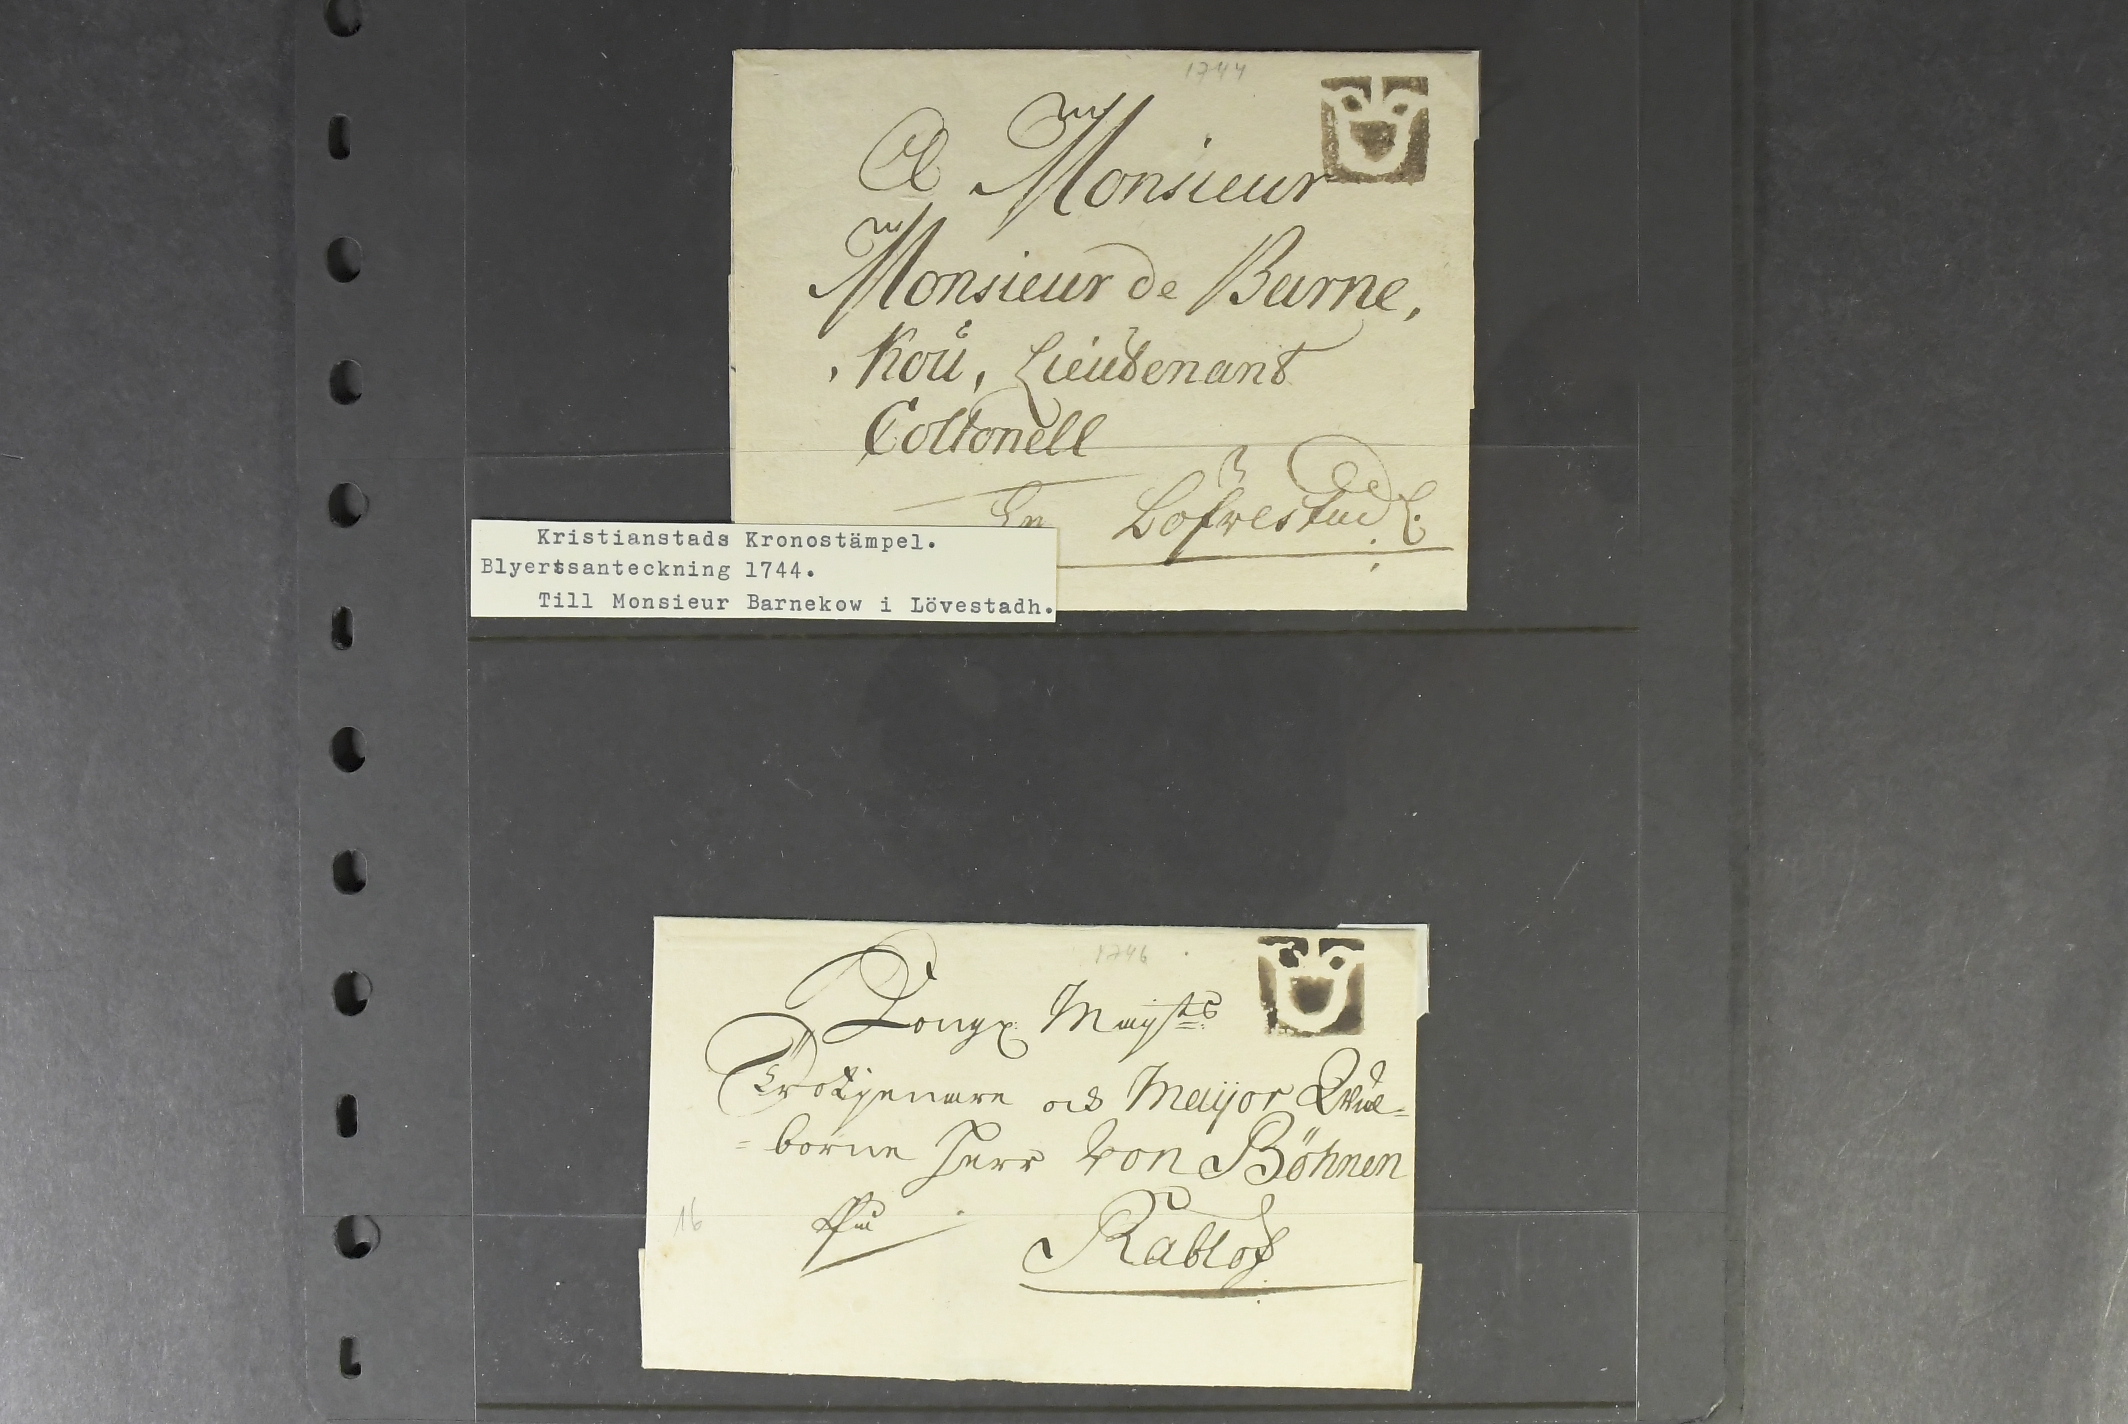 1744
A Monsieur
Monsieur de Barne,
, Koŭ, Lieutenant
Collonell
Löfwestad
Kristianstads Kronostämpel.
Blyertssanteckning 1744.
Till Monsieur Barnekow i Lövestadh.
1746
Kongx. Mayts
Trotjenare och Maijor Wäl=
=borne Herr von Böhnen
16
Kablöf